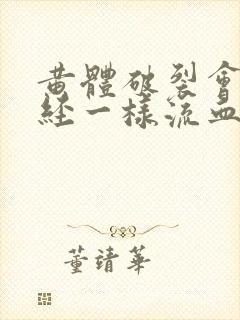 黄體破裂會
經一樣流血
董靖華